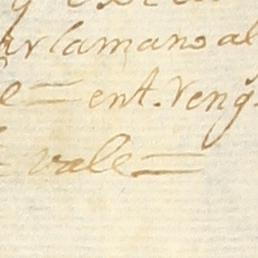 y
ar la mano al
e = ent. Veng
vale =